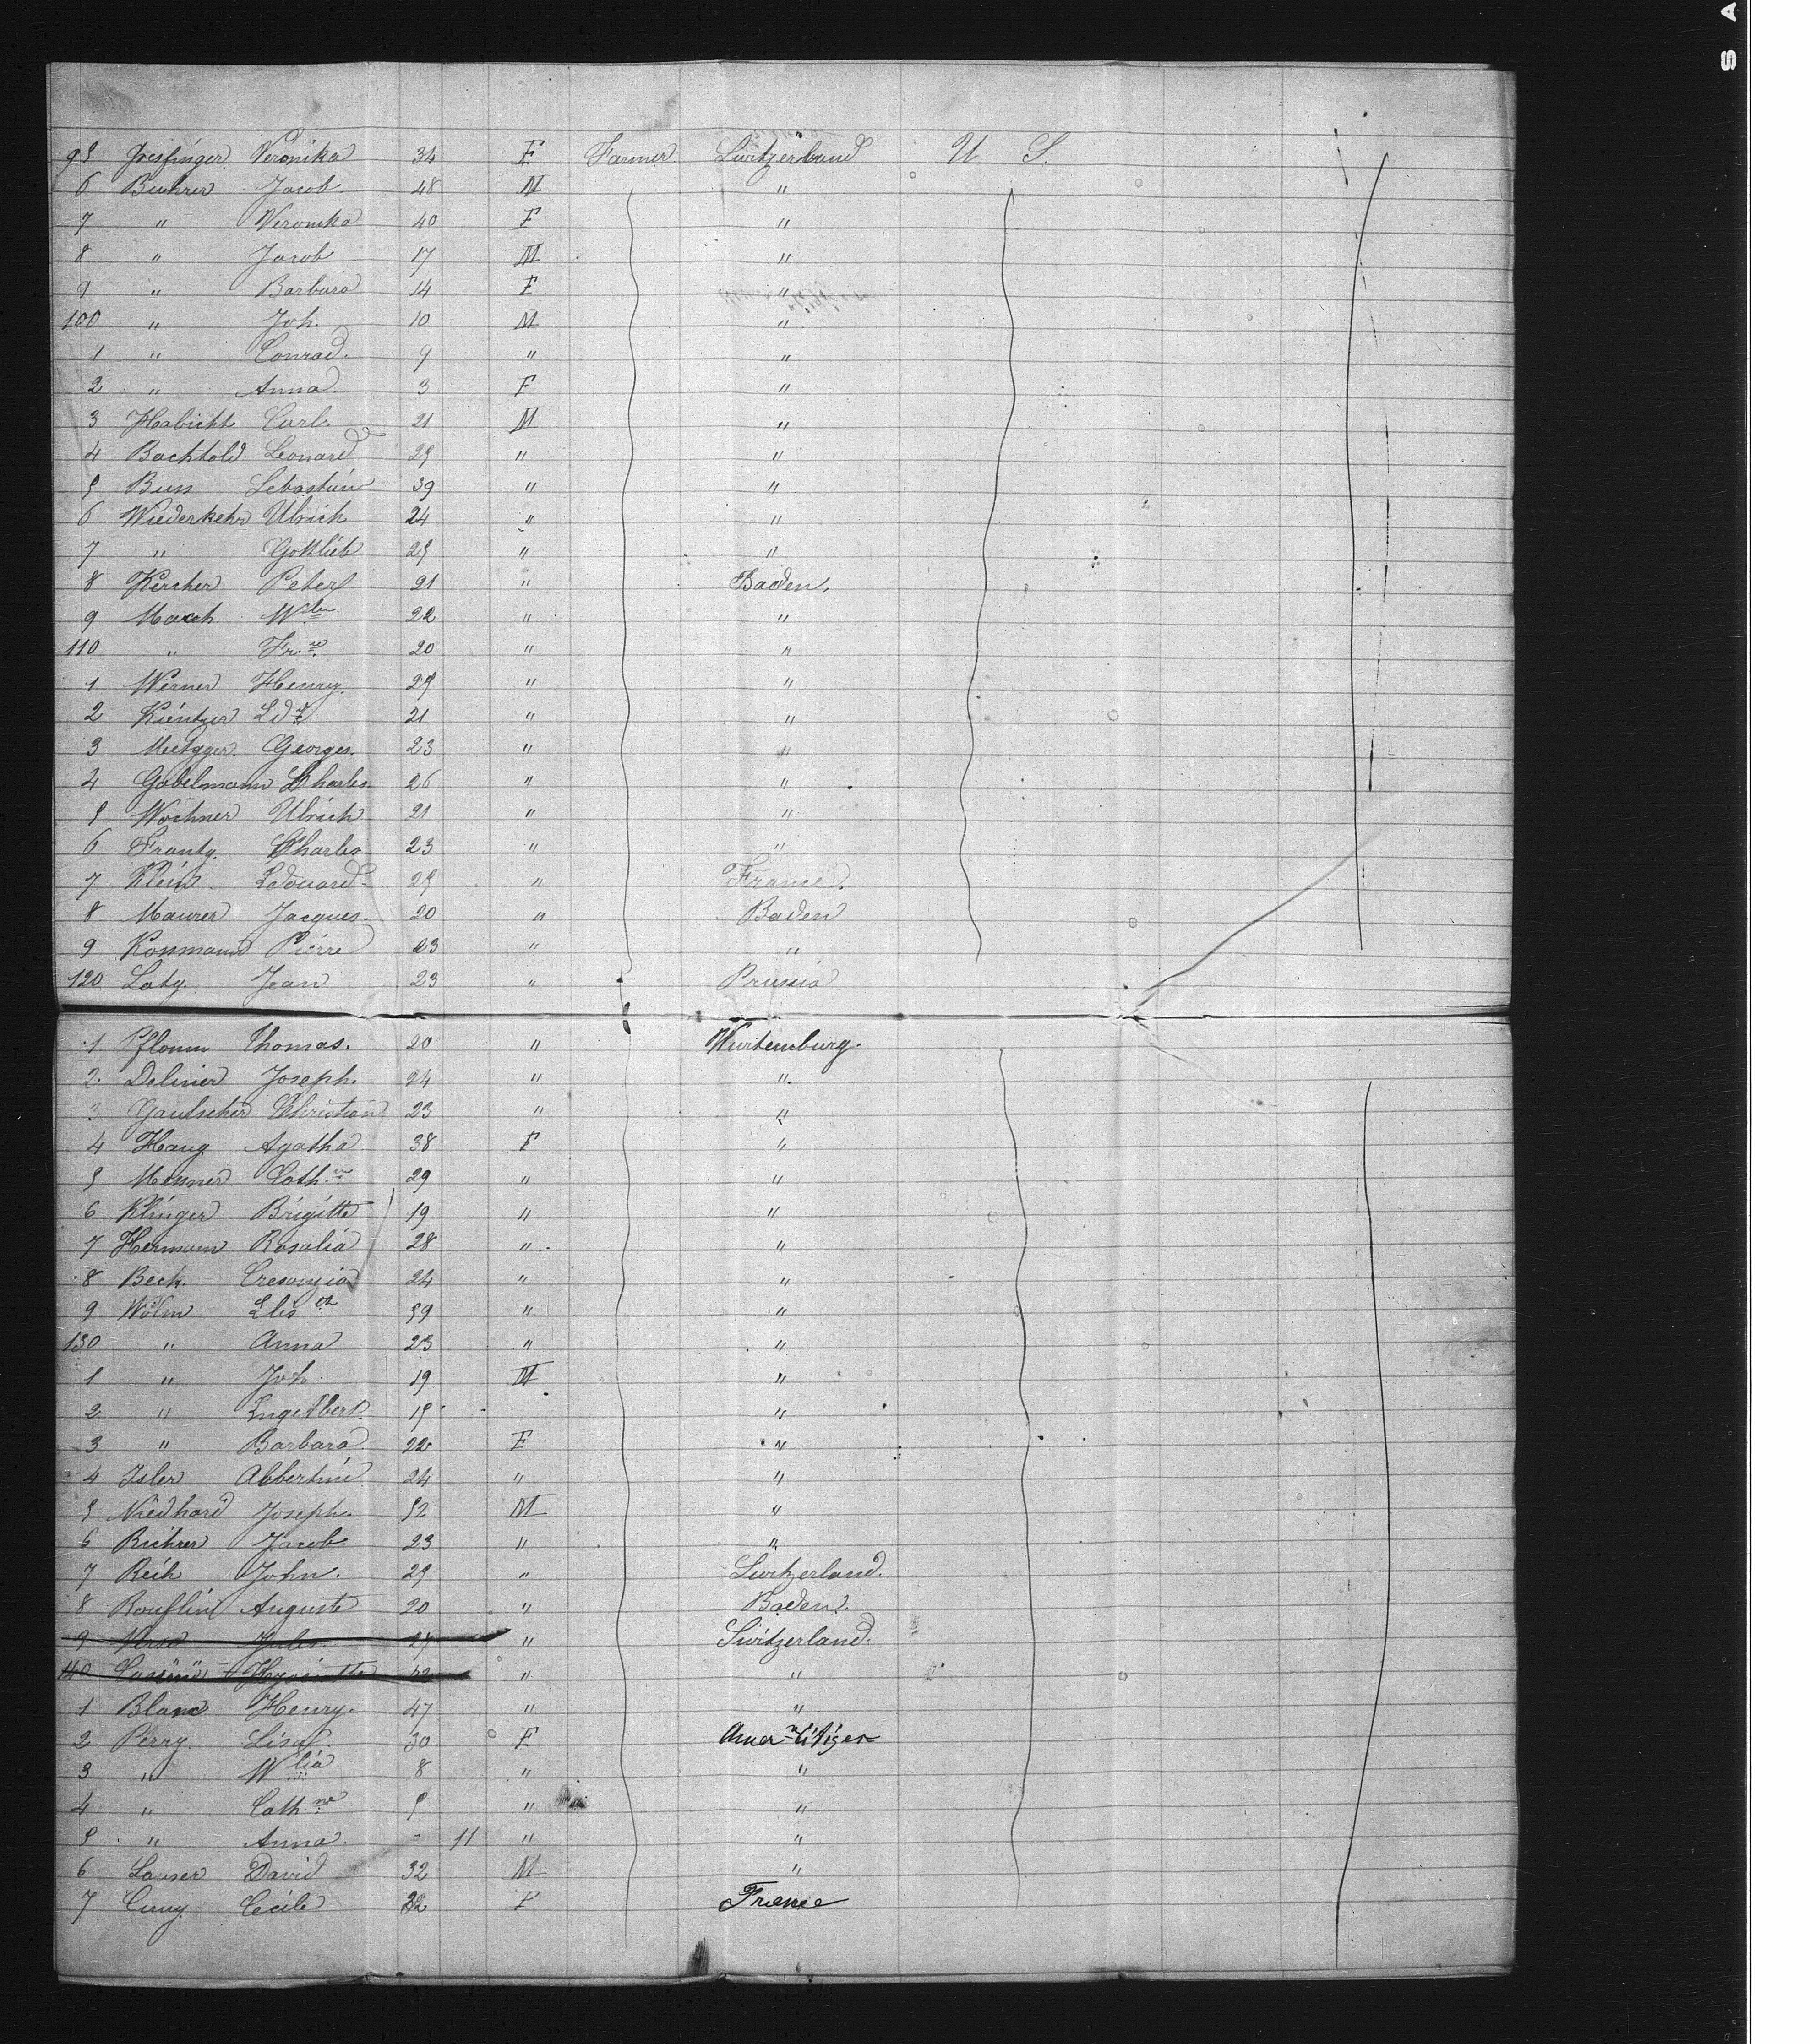 95 Veronika 34 F Farmer Switzerland U S.
6 Buhrer Jacob 48 M "
7 " Veronika 40 F "
8 " Jacob 17 M "
9 " Barbara 14 F "
100 " Joh. 10 M "
1 " Conrad. 9 " "
2 " Anna. 3 F "
3 Habicht Carl. 21 M "
4 Bachtold Leonard 25 " "
5 Buss Sebastian 39 " "
6 Wiederkehr Ulrich 24 " "
7 " Gottlieb 25 " "
8 Kercher Peter 21 " Baden.
9 22 " "
110 " 20 " "
1 Werner Henry. 25 " "
2 Kientzer Edd 21 " "
3 Metzger. Georges. 23 " "
4 Gobelmann Charles. 26 " "
5 Wochner Ulrich 21 " "
6 Frantz. Charles 23 " "
7 Klein Edouard. 25 " France.
8 Maurer Jacques. 20 " Baden
9 Kossmann Pierre 23 " "
120 Latz. Jean 23 " Prussia
1 Pflomm Thomas. 20 " Wurtemburg.
2. Delinier Joseph. 24 " "
3 Gautscher Christian 23 " "
4 Haug. Agatha 38 F "
5 Cath.ne 29 " "
6 Klinger Brigitte 19 " "
7 Hermann Rosalia 28 " "
8 Beck. Cresenzia 24 " "
9 Wölm Elis.th 59 " "
130 " Anna 23 " "
1 " Joh. 19 M "
2 " Engelbert. 15 "
3 " Barbara 22 F "
4 Isler Albertine 24 " "
5 Niedhard Joseph 52 M "
6 Richrer Jacob. 23 " "
7 Reih John. 25 " Switzerland.
8 Rouflin Auguste 20 " Baden.
9 Jules 27 " Switzerland.
140 Hyacinthe 42 " "
1 Blanc Henry. 47 " "
2 Perry. Lisa 30 F Amer.n Citizen
3 " Wlia 8 " "
4 " Cath.ne 5 " "
5 " Anna. - 11 " "
6 Lauser David 32 M "
7 Cuny. Cecile 22 F France
S A